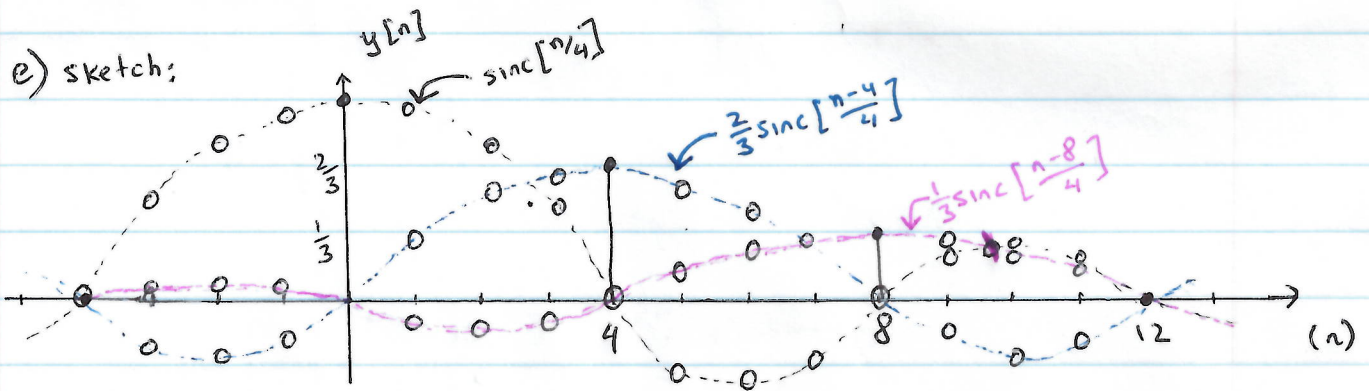 y[n]
e) sketch:
sinc[n/4]
2/3 sinc[n-4/4]
2/3
1/3 sinc[n-8/4]
1/3
4
8
12
(n)